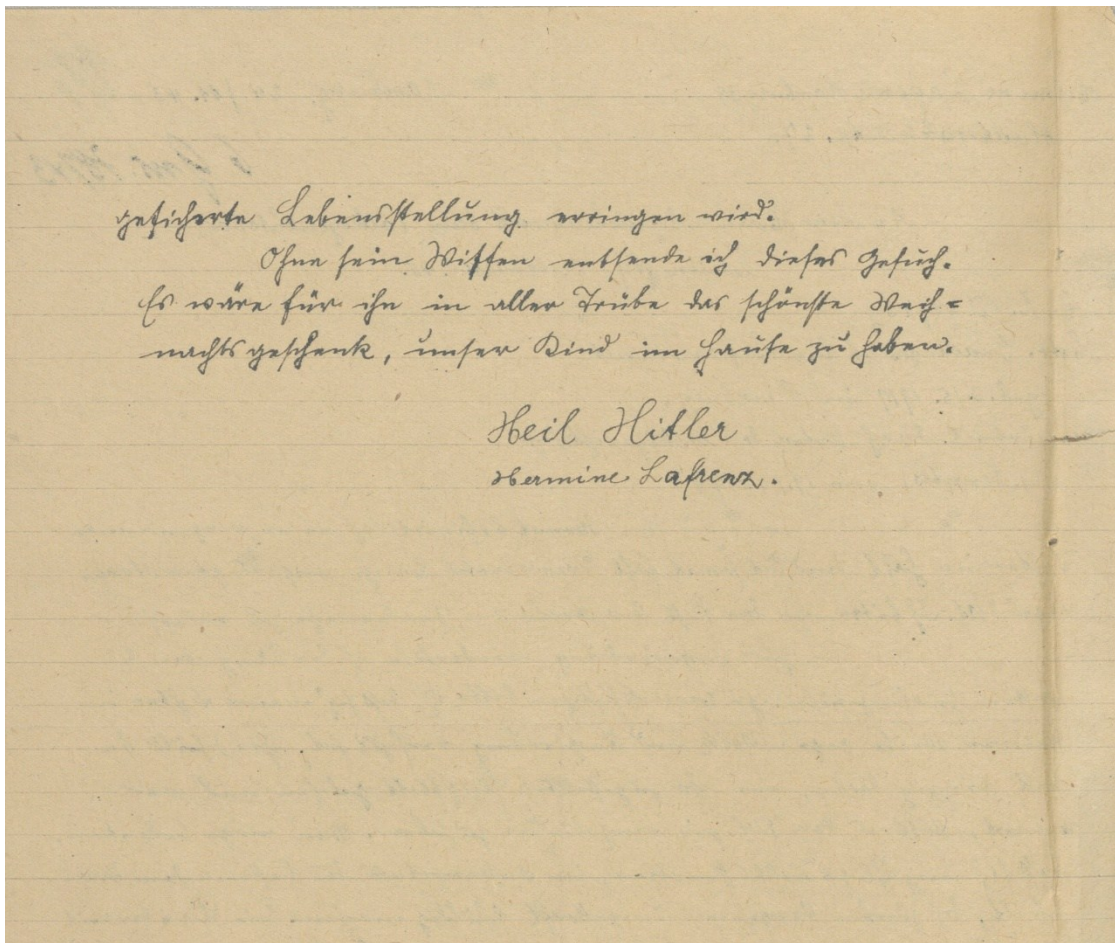 gesicherte Lebensstellung erringen wird.
Ohne sein Wissen entsende ich dieses Gesuch.
Es wäre für ihn in aller Trübe das schönste Weih=
nachtsgeschenk, unser Kind im Hause zu haben.
Heil Hitler
Hermine Lafrenz.